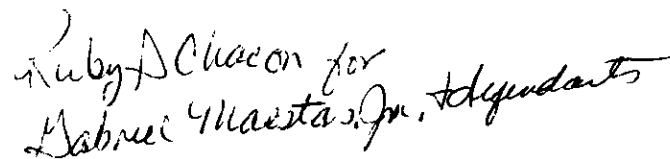 Ruby A Chacon for
Gabriel Maestas, Jr., + dependants